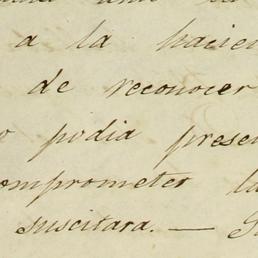 a la hacien
de reconocer
o podia presen
comprometer la
suscitara. —